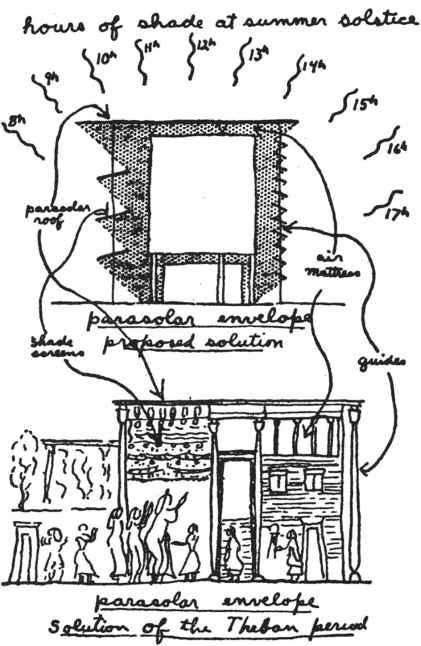 hours of shade at summer solstice
8h
9h
10h
11h
12h
13h
14h
15h
16h
17h
parasolar
roof
air
mattress
parasolar envelope
proposed solution
shade
screens
guides
parasolar envelope
Solution of the Theban period